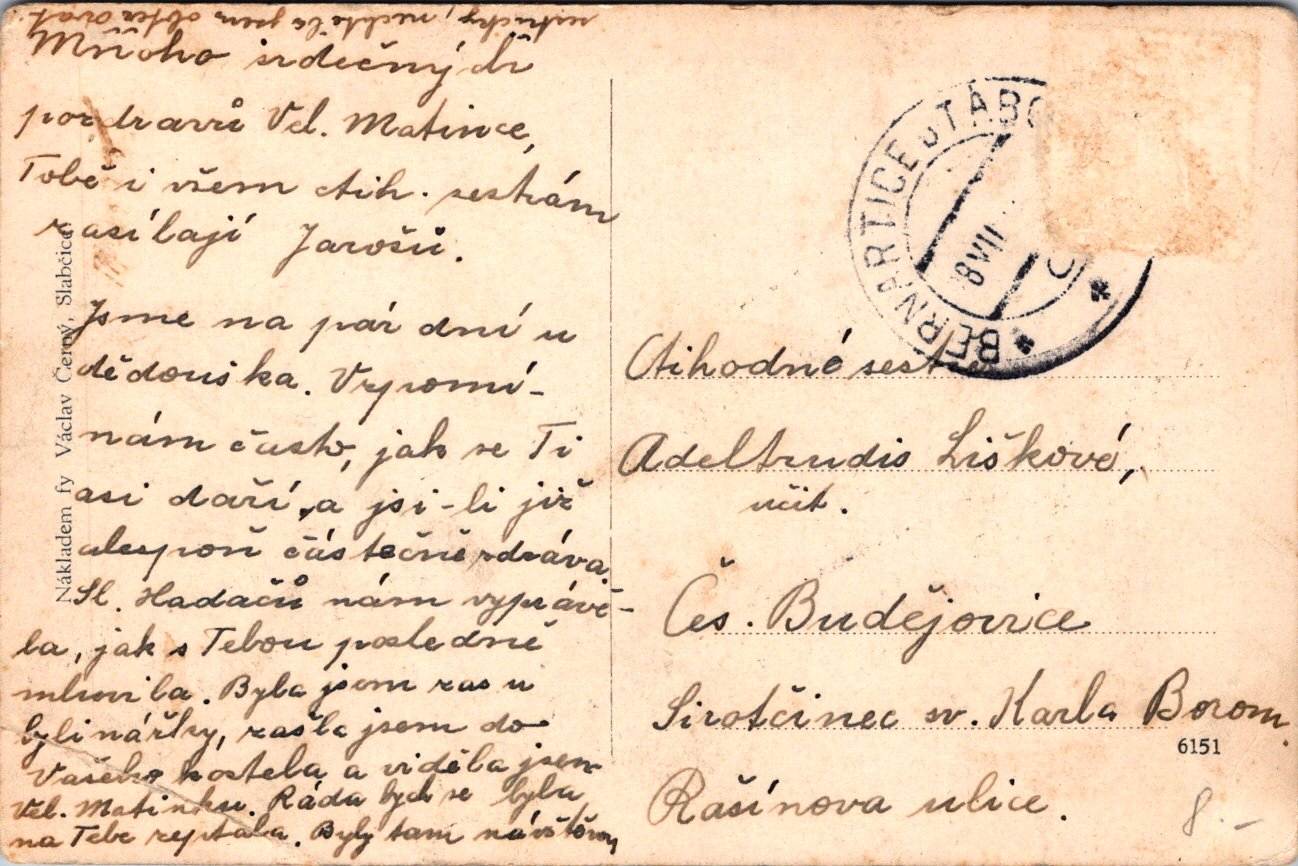 Mňoho srdečných
pozdravů Vel. Matince,
Tobě i všem ctih. sestrám
zasílají Jarošů.
Jsme na pár dní u
dědouška. Vzpomí-
nám často, jak se Ti
asi daří, a jsi-li již
alespoň částečně zdráva
Sl. Hadačů nám vyprávě-
la, jak s Tebou posledně
mluvila. Byla jsem zas u
bylinářky, zašla jsem do
Vašeho kostela a viděla jsem
Vel. Matinku. Ráda bych se byla
na Tebe zeptala. Byly tam návštěvy,
nechtěla jsem obtěžovat.
Nákladem fy Václav Černý, Slabčice
BERNARTICE U TÁBO
8 VII
Ctihodné sest
Adeltrudis Liškové,
učit.
Čes. Budějovice
Sirotčinec sv. Karla Borom.
Rašínova ulice.
6151
8.-